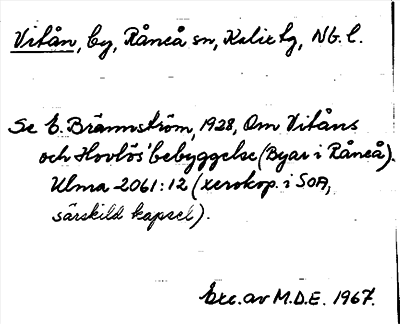 Vitån, by, Råneå sn, Kalix tg, Nb. l.
Se E. Brännström, 1928, Om Vitåns
och Hovlös' bebyggelse (Byar i Råneå).
Ulma 2061:12 (xerokop. i SOA,
särskild kapsel).
Exc. av M.D.E. 1967.